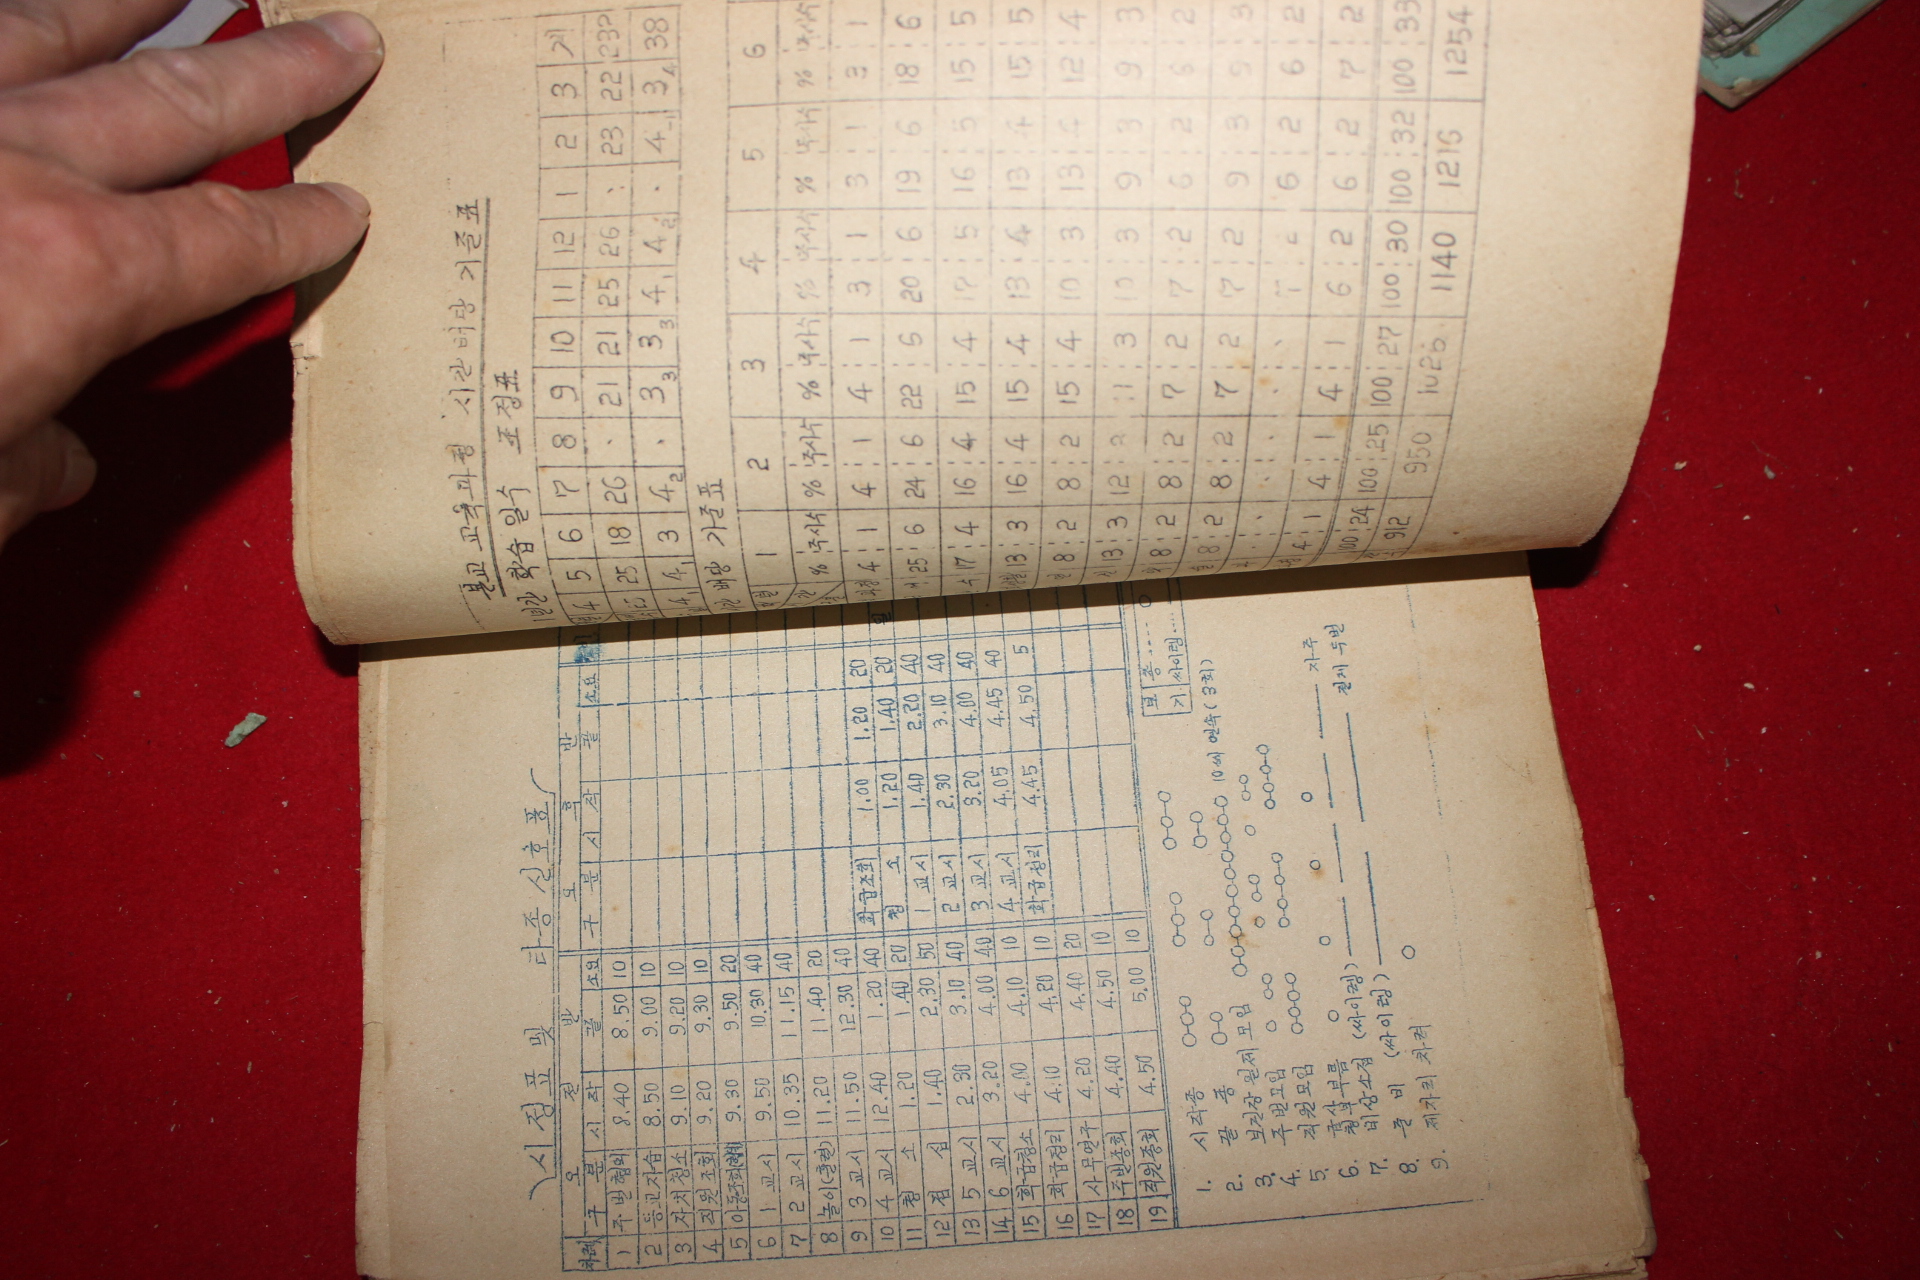 본교 교육과정 시간배당 기준표
년간 학습 일수 조정표
4 5 6 7 8 9 10 11 12 1 2 3 계
25 18 26 21 21 25 26 23 22 232
4 3 4 3 3 4 4 4 3 38
배당 기준표
1 2 3 4 5 6
% 주시수 % 주시수 % 주시수 % 주시수 % 주시수 % 주시수
4 1 4 1 4 1 3 1 3 1 3 1
25 6 24 6 22 6 20 6 19 6 18 6
17 4 16 4 15 4 17 5 16 5 15 5
13 3 16 4 15 4 13 4 13 4 15 5
8 2 8 2 15 4 10 3 13 4 12 4
13 3 12 3 11 3 10 3 9 3 9 3
8 2 8 2 7 2 7 2 6 2 6 2
8 2 8 2 7 2 7 2 9 3 9 3
6 2 6 2
4 1 4 1 4 1 6 2 6 2 7 2
100 24 100 25 100 27 100 30 100 32 100 33
912 950 1026 1140 1216 1254
시정표 및 타종 신호용
차례 오 전 반 오 후 반
구분 시작 끝 소요 구분 시작 끝 소요
1 주번협의 8.40 8.50 10
2 등교자습 8.50 9.00 10
3 자치청소 9.10 9.20 10
4 직원조회 9.20 9.30 10
5 아동조회 9.30 9.50 20
6 1 교시 9.50 10.30 40
7 2 교시 10.35 11.15 40
8 놀이 11.20 11.40 20
9 3 교시 11.50 12.30 40 학급조회 1.00 1.20 20
10 4 교시 12.40 1.20 40 청 소 1.20 1.40 20
11 청 소 1.20 1.40 20 1 교시 1.40 2.20 40
12 점 심 1.40 2.30 50 2 교시 2.30 3.10 40
13 5 교시 2.30 3.10 40 3 교시 3.20 4.00 40
14 6 교시 3.20 4.00 40 4 교시 4.05 4.45 40
15 학급청소 4.00 4.10 10 학급정리 4.45 4.50 5
16 학급정리 4.10 4.20 10
17 사무연구 4.20 4.40 20
18 주번종회 4.40 4.50 10
19 직원종회 4.50 5.00 10
보 종 .... O
기 싸이렝 ....
1. 시작종 O-O-O O-O-O O-O-O
2. 끝 종 O-O O-O O-O
3. 모임 10여 연속(3회)
주번모임 O O-O O O-O O O-O
4. 직원모임 O-O-O-O O-O-O-O O-O-O-O
5. O O O O
6. (싸이렝) 자주
7. 비상소집 (싸이렝) 두번
8. 준 비 O
9. 제자리 차려